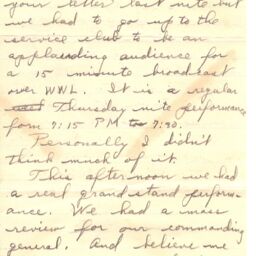 your letter last nite but
we had to go up to the
service club to be an
applauding audience for
a 15 minute broadcast
over WWL. It is a regular
Thursday nite performance
form 7:15 PM to 7:30.
Personally I didn't
think much of it.
This afternoon we had
a real grand stand perform-
ance. We had a mass
review for our commanding
general. And believe me